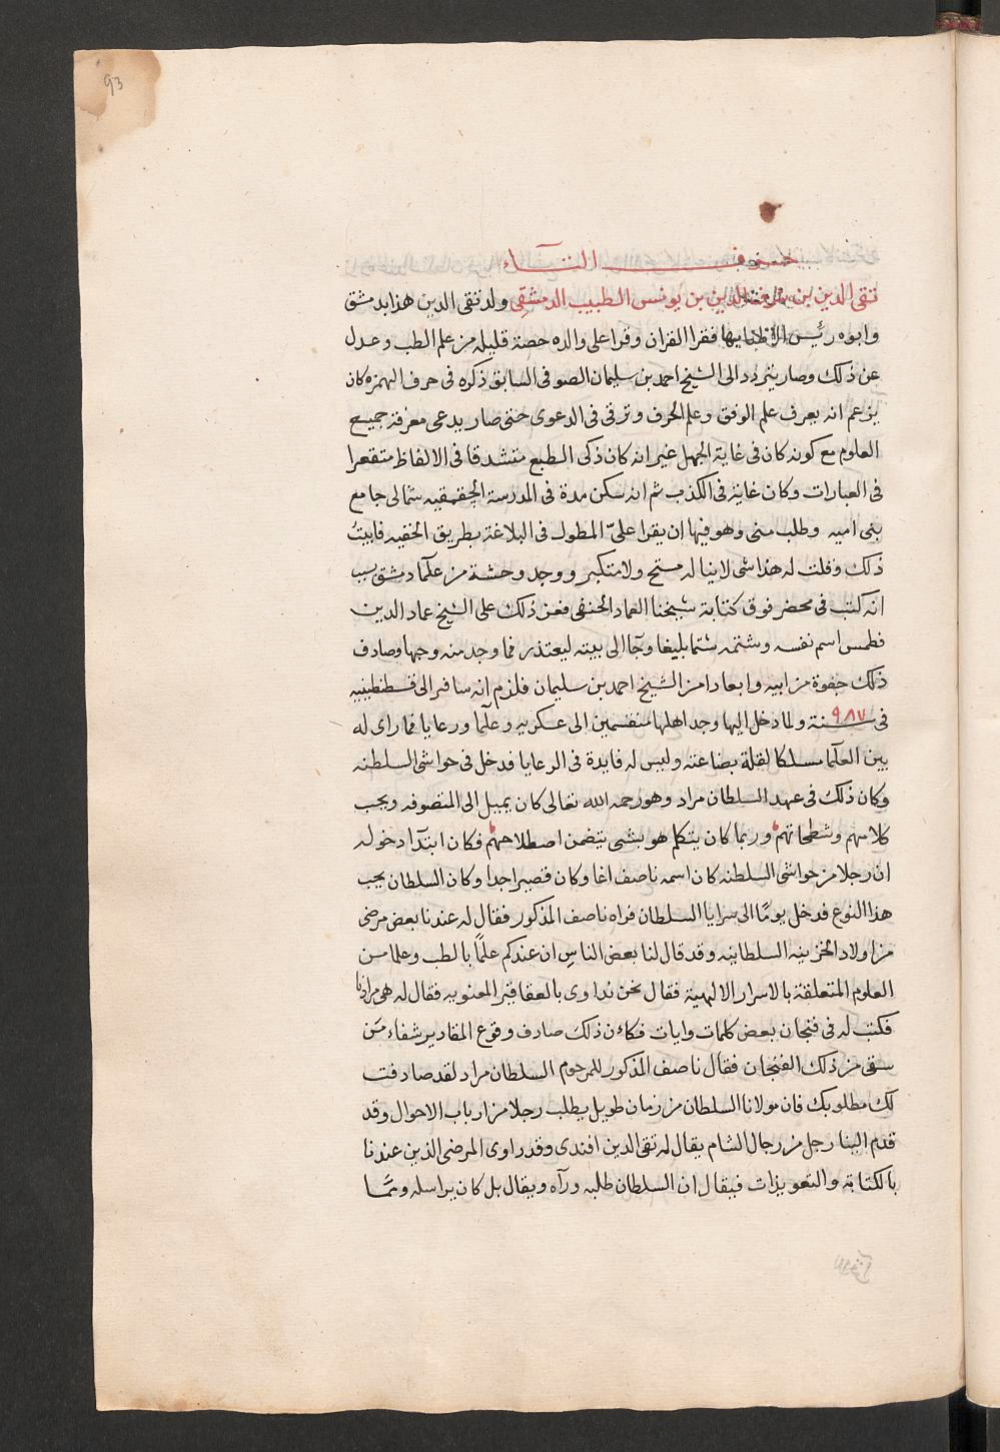 93
حرف التاء
تقى الدين بن شرف الدين بن يونس الطبيب الدمشقى ولد تقى الدين هذا بدمشق
وابوه رئيس الاطبا بها فقرا القران وقرا على والده حصة قليله من علم الطب وعدل
عن ذلك وصار يتردد الى الشيخ احمد بن سليمان الصوفى السابق ذكره فى حرف الهمزه كان
يزعم انه يعرف علم الوفق وعلم الحرف وترقى فى الدعوى حتى صار يدعى معرفة جميع
العلوم مع كونه كان فى غاية الجهل غير انه كان ذكى الطبع متشدقا فى الالفاظ متقعرا
فى العبارات وكان غاية فى الكذب ثم انه سكن مدة فى المدرسة الجقمقيه شمالى جامع
بنى اميه وطلب منى وهو فيها ان يقرا علىّ المطول فى البلاغة بطريق الخفيه فابيت
ذلك وقلت له هذا شى لا يناله مستح ولا متكبر ووجد وحشة من علما دمشق بسبب
انه كتب فى محضر فوق كتابة شيخنا العماد الحنفى فعز ذلك على الشيخ عماد الدين
فطمس اسم نفسه وشتمه شتما بليغا وجا الى بيته ليعتذر فما وجد منه وجها وصادف
ذلك جفوة من ابيه وابعادا من الشيخ احمد بن سليمان فلزم انه سافر الى قسطنطينيه
فى سنة ٩٨٧ ولما دخل اليها وجد اهلها منقسمين الى عسكريه وعلما ورعايا فما راى له
بين العلما مسلكا لقلة بضاعته وليس له فايدة فى الرعايا فدخل فى حواشى السلطنه
وكان ذلك فى عهد السلطان مراد وهو رحمه الله تعالى كان يميل الى المتصوفه ويحب
كلامهم وشطحاتهم وربما كان يتكلم هو بشى يتضمن اصطلاحهم فكان ابتدآ دخوله
ان رجلا من حواشى السلطنه كان اسمه ناصف اغا وكان قصيرا جدا وكان السلطان يحب
هذا النوع فدخل يومًا الى سرايا السلطان فراه ناصف المذكور فقال له عندنا بعض مرضى
من اولاد الخزينه السلطانيه وقد قال لنا بعض الناس ان عندكم علمًا بالطب وعلما من
العلوم المتعلقة بالاسرار الالهية فقال نحن نداوى بالعقاقير المعنويه فقال له هى مرادنا
فكتب له فى فنجان بعض كلمات وايات فكاءن ذلك صادف وقوع المقادير شفاء من
سقى من ذلك الفنجان فقال ناصف المذكور للمرحوم السلطان مراد لقد صادفت
لك مطلوبك فان مولانا السلطان من زمان طويل يطلب رجلا من ارباب الاحوال وقد
قدم الينا رجل من رجال الشام يقال له تقى الدين افندى وقد داوى المرضى الذين عندنا
بالكتابة والتعويزات فيقال ان السلطان طلبه ورآه ويقال بل كان يراسله وممّا